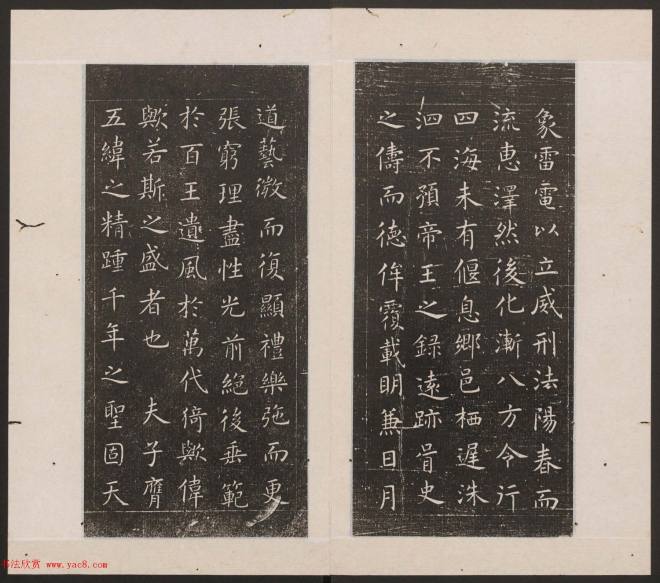 象雷電以立威刑法陽春而
流恵澤然後化漸八方令行
四海未有偃息鄉邑栖遲洙
泗不預帝王之録遠跡胥史
之儔而徳侔覆載明兼日月
道藝微而復顯禮樂弛而更
張窮理盡性光前絕後垂範
於百王遺風於萬代猗歟偉
歟若斯之盛者也 夫子膺
五緯之精踵千年之聖固天
书法欣赏 www.yac8.com